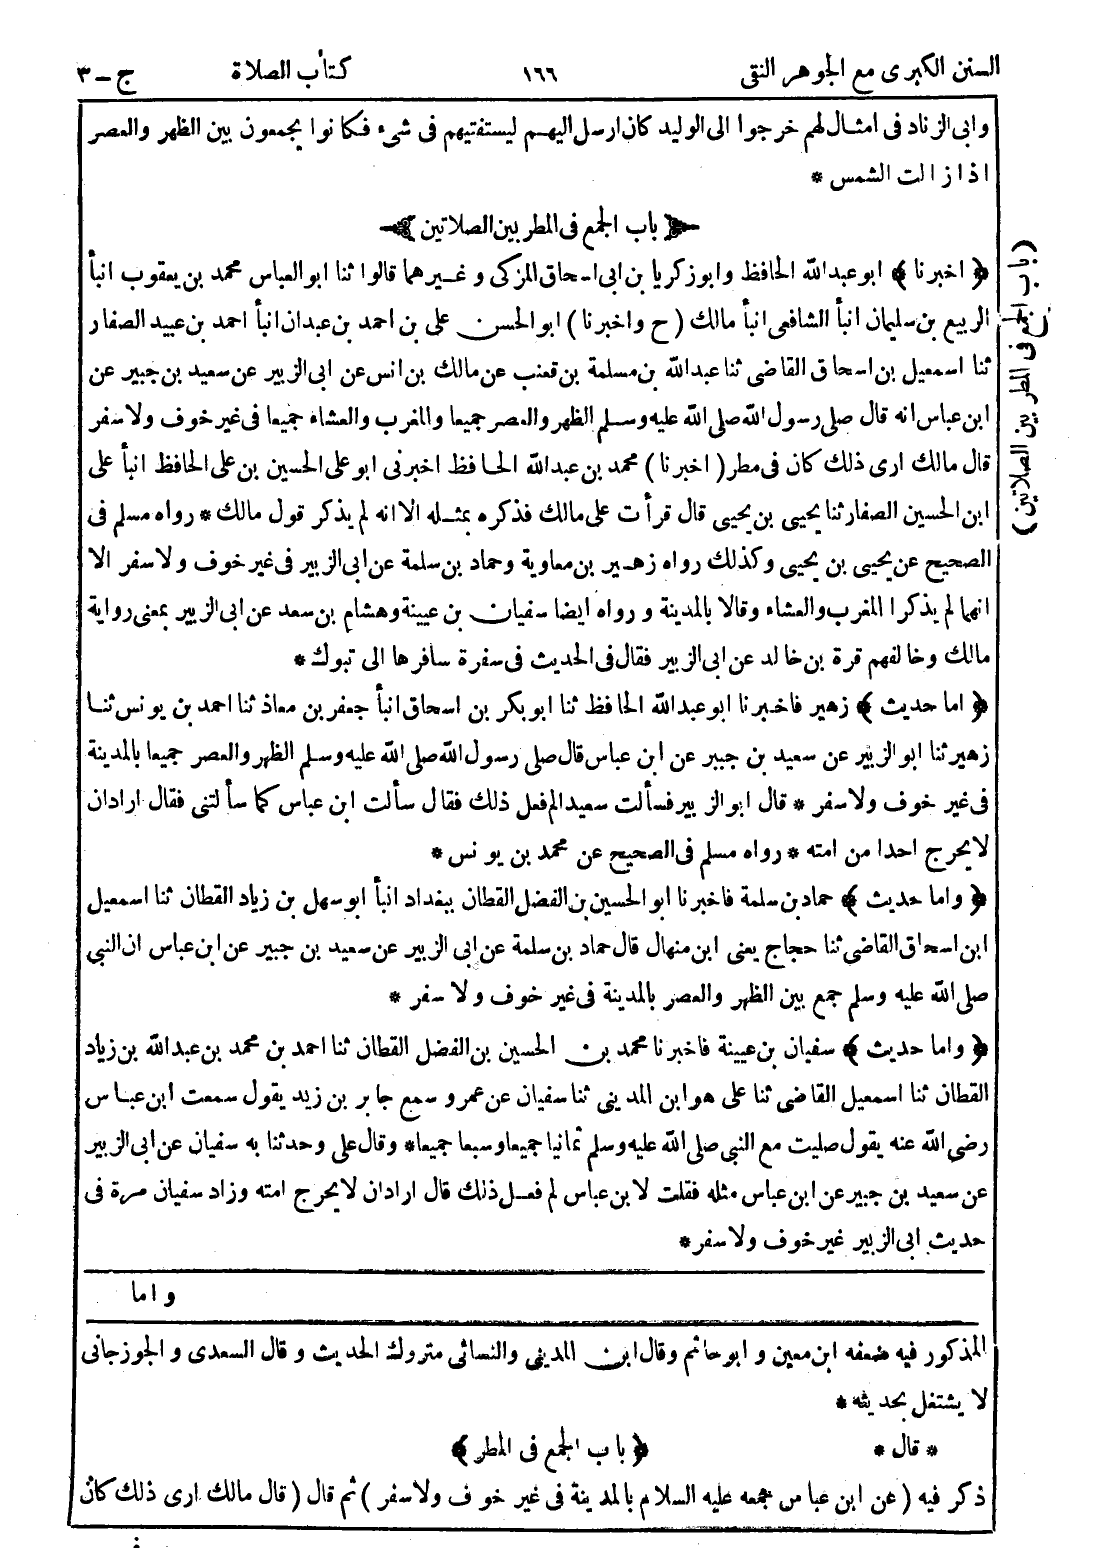 السنن الكبرى مع الجوهر النقى ١٦٦ كتاب الصلاة ج-٣
وابى الزناد فى امثال لهم خرجوا الى الوليد كان ارسل اليهم ليستفتيهم فى شىء فكانوا يجمعون بين الظهر والعصر
اذا زالت الشمس *
﴿ باب الجمع فى المطر بين الصلاتين ﴾
(باب الجمع فى المطر بين الصلاتين)
﴿ اخبرنا ﴾ ابو عبد الله الحافظ وابو زكريا بن ابى اسحاق المزكى وغيرهما قالوا ثنا ابو العباس محمد بن يعقوب انبأ
الربيع بن سليمان انبأ الشافعى انبأ مالك (ح واخبرنا) ابو الحسن على بن احمد بن عبدان انبأ احمد بن عبيد الصفار
ثنا اسمعيل بن اسحاق القاضى ثنا عبد الله بن مسلمة بن قعنب عن مالك بن انس عن ابى الزبير عن سعيد بن جبير عن
ابن عباس انه قال صلى رسول الله صلى الله عليه وسلم الظهر والعصر جميعا والمغرب والعشاء جميعا فى غير خوف ولا سفر
قال مالك ارى ذلك كان فى مطر (اخبرنا) محمد بن عبد الله الحافظ اخبرنى ابو على الحسين بن على الحافظ انبأ على
ابن الحسين الصفار ثنا يحيى بن يحيى قال قرأت على مالك فذكره بمثله الا انه لم يذكر قول مالك * رواه مسلم فى
الصحيح عن يحيى بن يحيى وكذلك رواه زهير بن معاوية وحماد بن سلمة عن ابى الزبير فى غير خوف ولا سفر الا
انهما لم يذكرا المغرب والعشاء وقالا بالمدينة ورواه ايضا سفيان بن عيينة وهشام بن سعد عن ابى الزبير بمعنى رواية
مالك وخالفهم قرة بن خالد عن ابى الزبير فقال فى الحديث فى سفرة سافرها الى تبوك *
﴿ اما حديث ﴾ زهير فاخبرنا ابو عبد الله الحافظ ثنا ابو بكر بن اسحاق انبأ جعفر بن معاذ ثنا احمد بن يونس ثنا
زهير ثنا ابو الزبير عن سعيد بن جبير عن ابن عباس قال صلى رسول الله صلى الله عليه وسلم الظهر والعصر جميعا بالمدينة
فى غير خوف ولا سفر * قال ابو الزبير فسألت سعيدا لم فعل ذلك فقال سألت ابن عباس كما سألتنى فقال اراد ان
لا يحرج احدا من امته * رواه مسلم فى الصحيح عن محمد بن يونس *
﴿ واما حديث ﴾ حماد بن سلمة فاخبرنا ابو الحسين بن الفضل القطان ببغداد انبأ ابو سهل بن زياد القطان ثنا اسمعيل
ابن اسحاق القاضى ثنا حجاج يعنى ابن منهال قال حماد بن سلمة عن ابى الزبير عن سعيد بن جبير عن ابن عباس ان النبي
صلى الله عليه وسلم جمع بين الظهر والعصر بالمدينة فى غير خوف ولا سفر *
﴿ واما حديث ﴾ سفيان بن عيينة فاخبرنا محمد بن الحسين بن الفضل القطان ثنا احمد بن محمد بن عبد الله بن زياد
القطان ثنا اسمعيل القاضى ثنا على هو ابن المدينى ثنا سفيان عن عمرو سمع جابر بن زيد يقول سمعت ابن عباس
رضى الله عنه يقول صليت مع النبى صلى الله عليه وسلم ثمانيا جميعا وسبعا جميعا * وقال على وحدثنا به سفيان عن ابى الزبير
عن سعيد بن جبير عن ابن عباس مثله فقلت لابن عباس لم فعل ذلك قال اراد ان لا يحرج امته وزاد سفيان مرة فى
حديث ابى الزبير غير خوف ولا سفر *
واما
المذكور فيه ضعفه ابن معين وابو حاتم وقال ابن المدينى والنسائى متروك الحديث وقال السعدى والجوزجانى
لا يشتغل بحديثه *
* قال * ﴿ باب الجمع فى المطر ﴾
ذكر فيه (عن ابن عباس جمعه عليه السلام بالمدينة فى غير خوف ولا سفر) ثم قال (قال مالك ارى ذلك كان